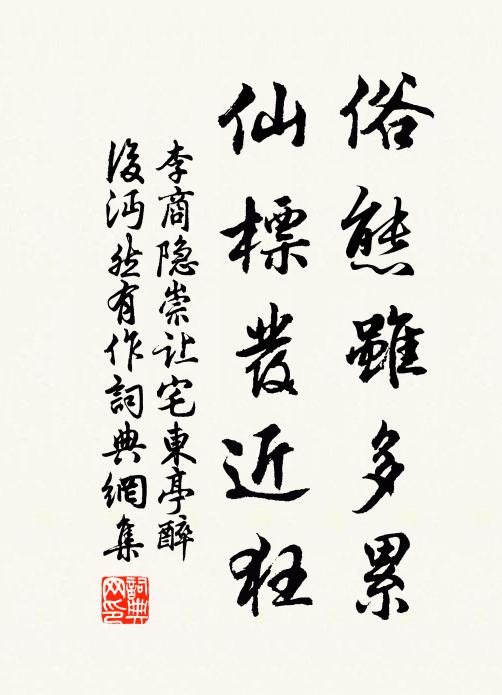 俗態雖多累
仙標發近狂
李商隐崇让宅東亭醉
後沔然有作詞典網集
詞典
网印